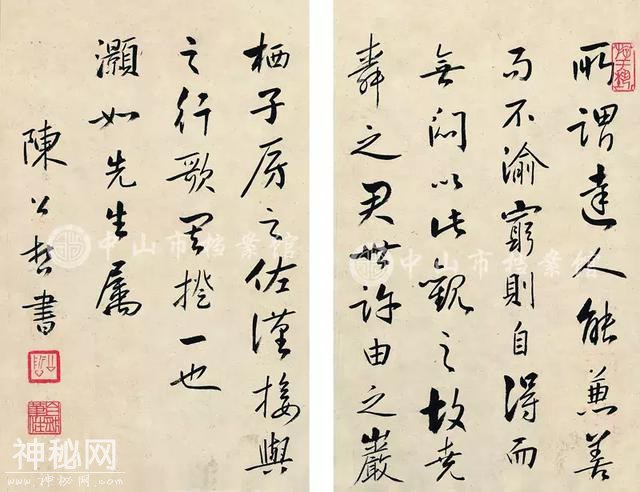 所謂達人能兼善
而不渝窮則自得而
無悶以此觀之故堯
舜之君世許由之巖
栖子房之佐漢接輿
之行歌其揆一也
灝如先生屬
陳公哲書
中山市档案馆
中山市档案馆
神秘网
www.uux.cn